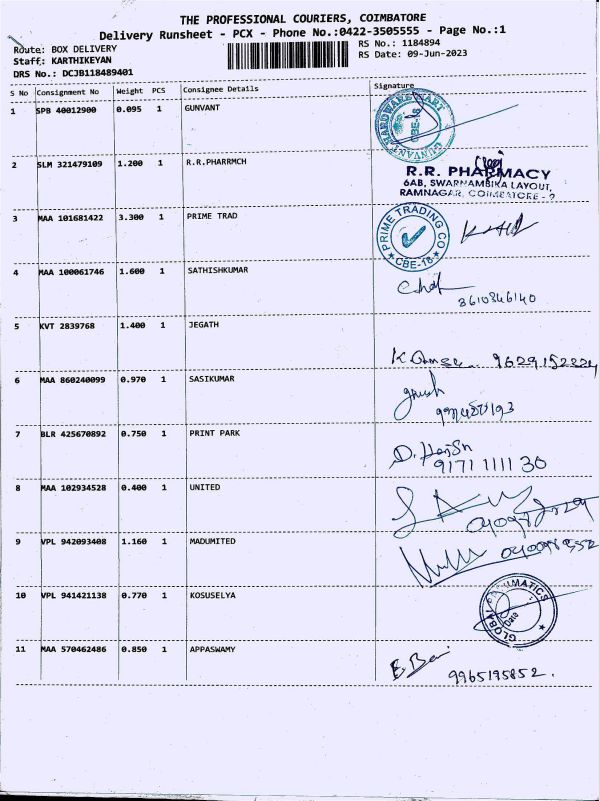 THE PROFESSIONAL COURIERS, COIMBATORE
Delivery Runsheet - PCX - Phone No.:0422-3505555 - Page No.:1
Route: BOX DELIVERY
RS No.: 1184894
Staff: KARTHIKEYAN
RS Date: 09-Jun-2023
DRS No.: DCJB118489401
S No Consignment No Weight PCS Consignee Details Signature
1 SPB 40012900 0.095 1 GUNVANT
GUNVANT HARDWARE MART
CBE-18
2 SLM 321479109 1.200 1 R.R.PHARRMCH
R.R. PHARMACY
6AB, SWARNAMBIKA LAYOUT,
RAMNAGAR, COIMBATORE - 9
3 MAA 101681422 3.300 1 PRIME TRAD
PRIME TRADING CO
CBE-18
4 MAA 100061746 1.600 1 SATHISHKUMAR
8610846140
5 KVT 2839768 1.400 1 JEGATH
6 MAA 860240099 0.970 1 SASIKUMAR
7 BLR 425670892 0.750 1 PRINT PARK
9171 1111 30
8 MAA 102934528 0.400 1 UNITED
9 VPL 942093408 1.160 1 MADUMITED
10 VPL 941421138 0.770 1 KOSUSELYA
11 MAA 570462486 0.850 1 APPASWAMY
9965195852.